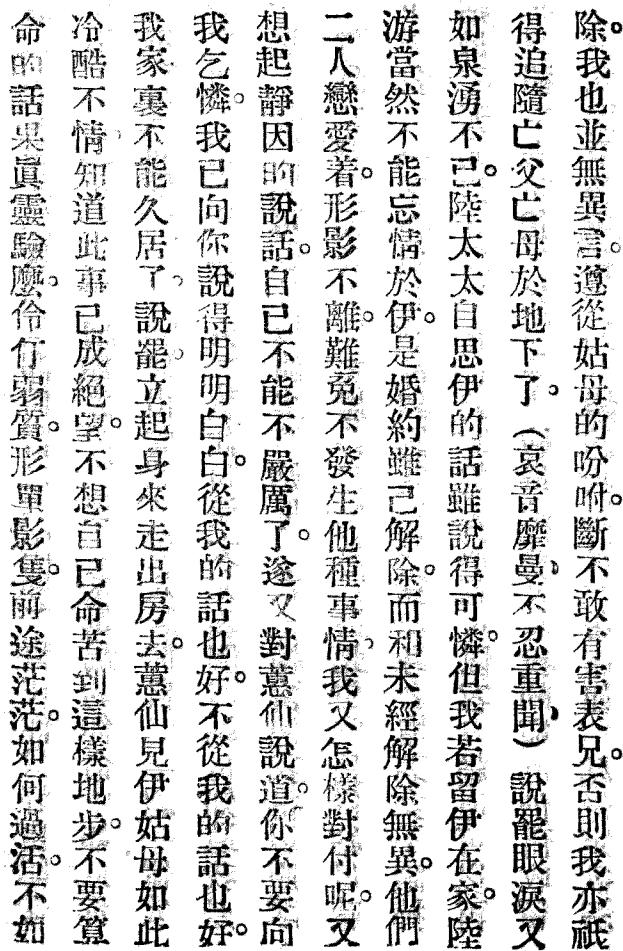 除。我也並無異言。遵從姑母的吩咐。斷不敢有害表兄。否則我亦祇
得追隨亡父亡母於地下了。（哀音靡曼、不忍重聞、）說罷眼淚又
如泉湧不已。陸太太自思伊的話雖說得可憐。但我若留伊在家。陸
游當然不能忘情於伊。是婚約雖已解除。而和未經解除無異。他們
二人戀愛着。形影不離。難免不發生他種事情。我又怎樣對付呢。又
想起靜因的說話。自己不能不嚴厲了。遂又對蕙仙說道。你不要向
我乞憐。我已向你說得明明白白。從我的話也好。不從我的話也好。
我家裏不能久居了。說罷。立起身來走出房去。蕙仙見伊姑母如此
冷酷不情、知道此事已成絕望。不想自己命苦到這樣地步。不要算
命的話果眞靈驗麼。伶仃弱質。形單影隻。前途茫茫。如何過活。不如